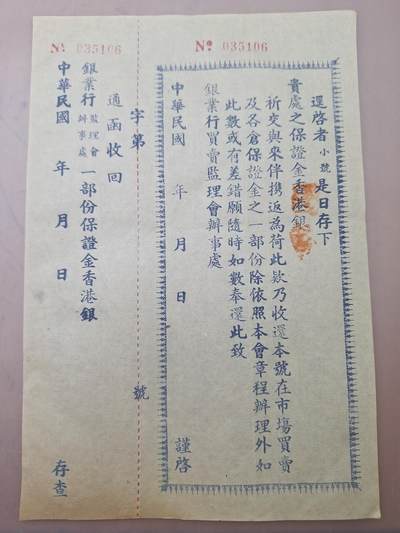 No 035106
逕啓者小號是日存下
貴處之保證金香港銀
祈交與來伴携返為荷此欵乃收還本號在市塲買賣
及各倉保證金之一部份除依照本會章程辦理外如
此數或有差錯願隨時如數奉還此致
銀業行買賣監理會辦事處
中華民國 年 月 日 謹啓
No 035106
字第 號
通函收回
銀業行監理會辦事處一部份保證金香港銀
中華民國 年 月 日 存查